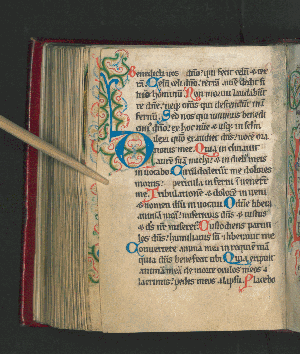 Benedicti vos a dño qui fecit celū et ter
rā. Celū celi dño: terrā autē dedit fi
liis hominū. Non mortui laudabūt
te dñe: neqꝫ omēs qui descendunt in in
fernū. Sed nos qui vivimus benedi
cimꝰ dño: ex hoc nūc et usqꝫ in sclm̄.
Dilexi qm̄ exaudiet dñs: vocē ora
tionis mee. Quia inclinavit
aurē suā michi: et in diebꝫ meis
invocabo. Circūdederūt me dolores
mortis: pericula inferni invenerūt
me. Tribulationē et dolorē inveni
et nomen dñi invocavi. O dñe libera
animā meā: misericors dñs et iustus
et ds̄ nr̄ miseretꝰ. Custodiens parvu
los dñs: humiliatus sū et liberavit me
Convertere anima mea in requiē tuā
quia dñs benefecit tibi. Quia eripuit
animā meā de morte oculos meos a
lacrimis: pedes meos a lapsu. Placebo